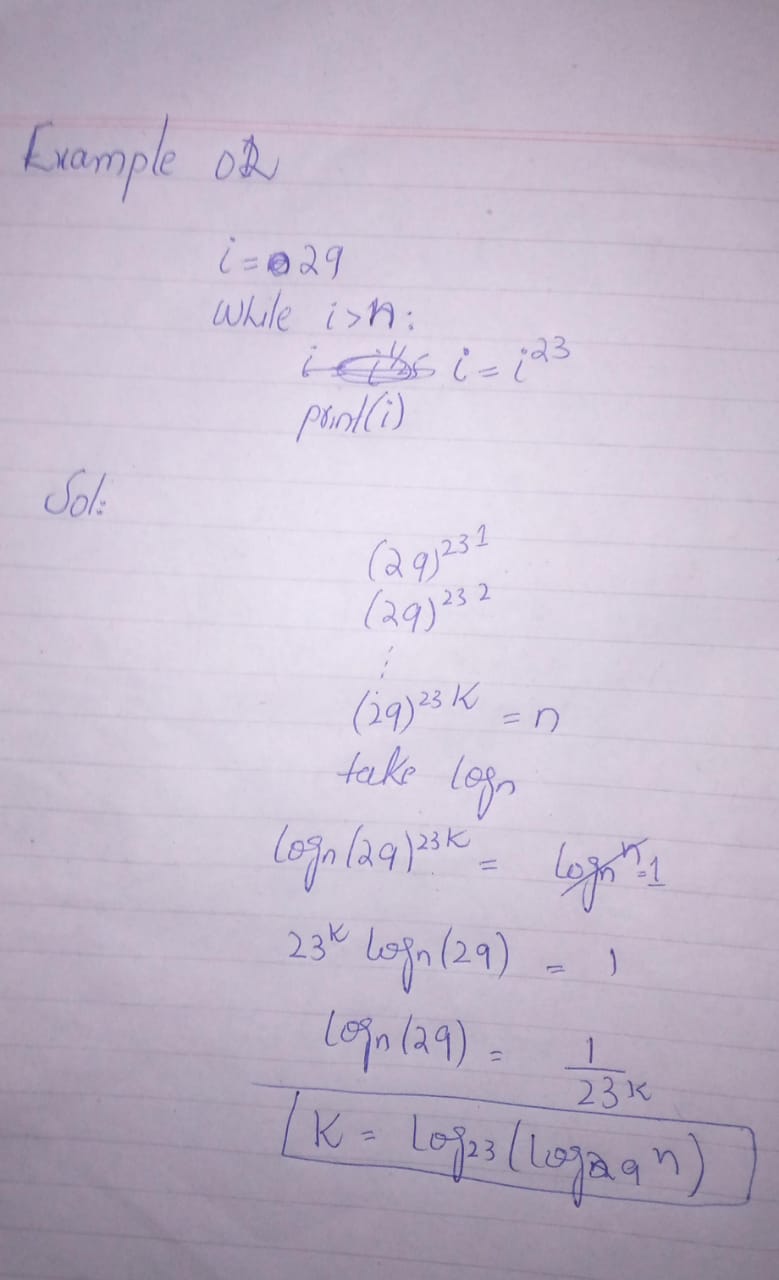 Example 02
i = 29
While i > n:
i = i^23
print(i)
Sol:
(29)^23^1
(29)^23^2
⋮
(29)^23^K = n
take logn
logn (29)^23^K = logn^n = 1
23^K logn (29) = 1
logn (29) = 1/23^K
K = log23 (log29 n)